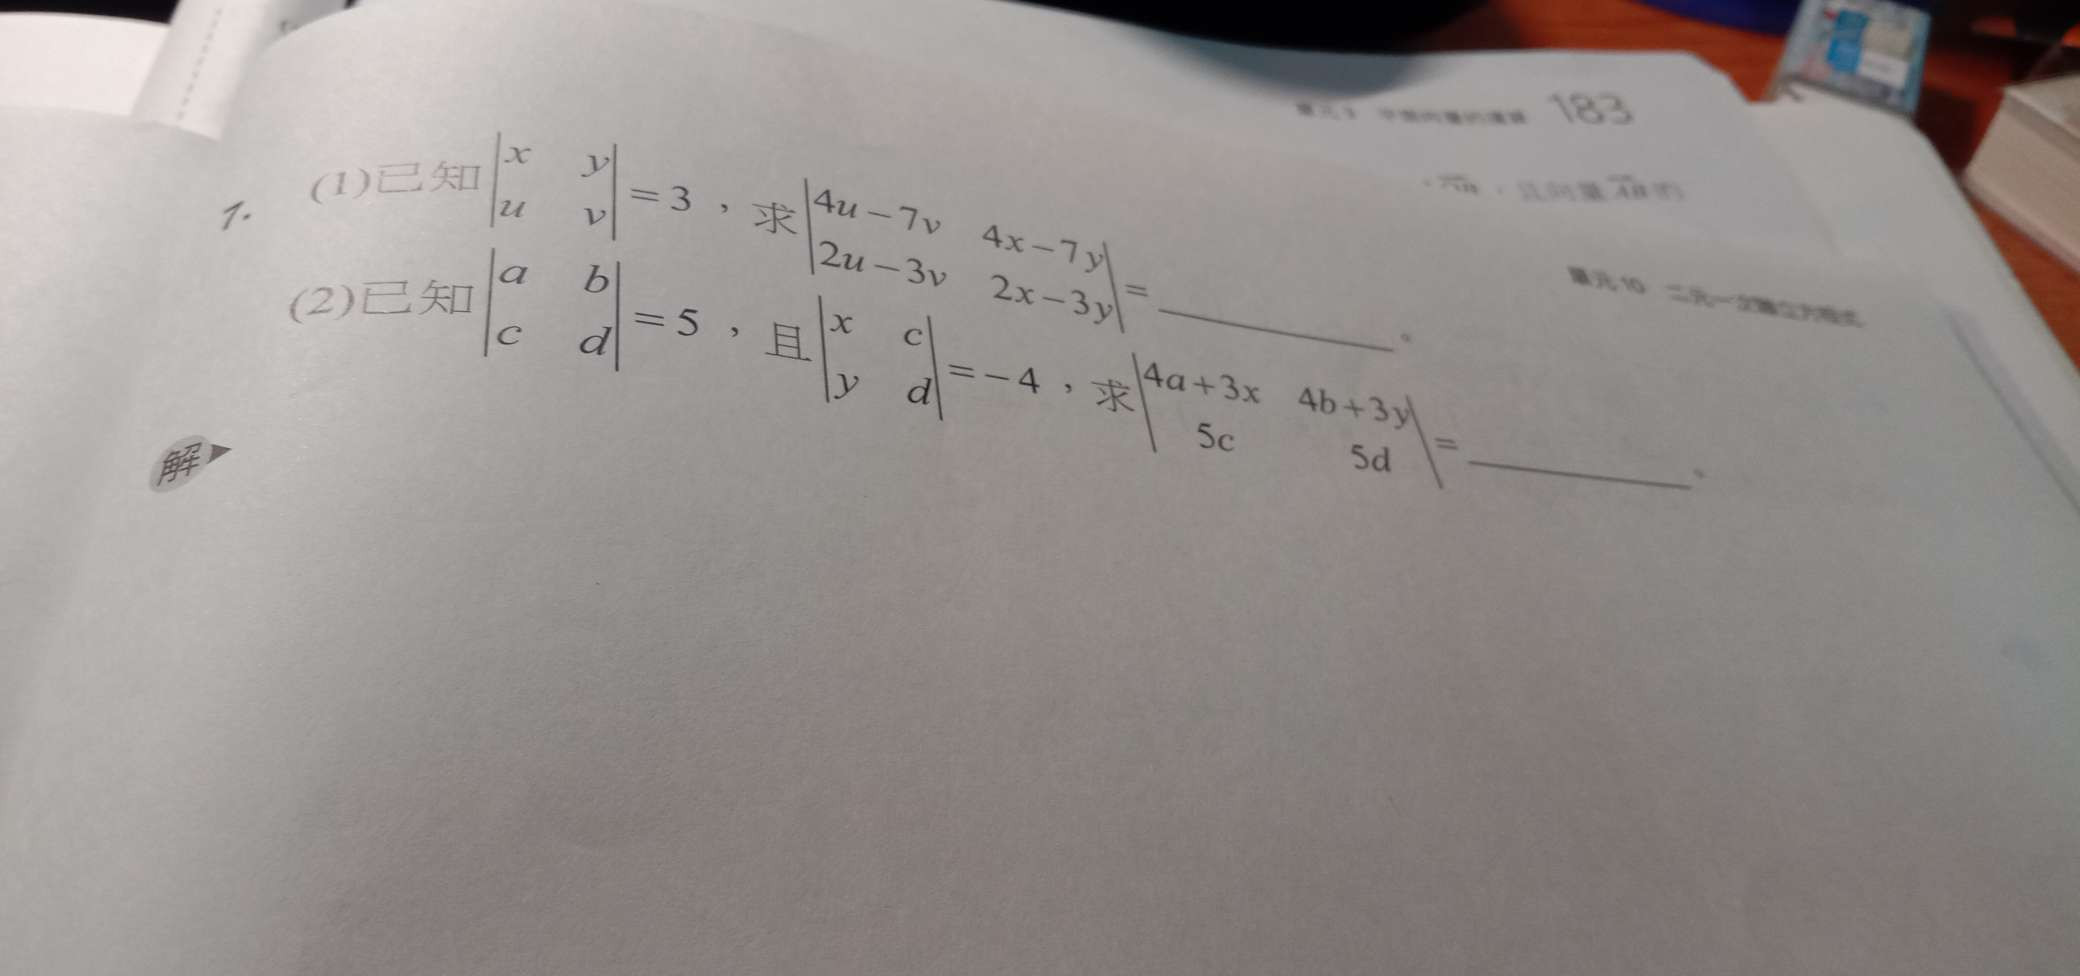 183
單元10 二元一次聯立方程式
1. (1)已知|x y; u v|=3，求|4u-7v 4x-7y; 2u-3v 2x-3y|=________。
(2)已知|a b; c d|=5，且|x c; y d|=-4，求|4a+3x 4b+3y; 5c 5d|=________。
解